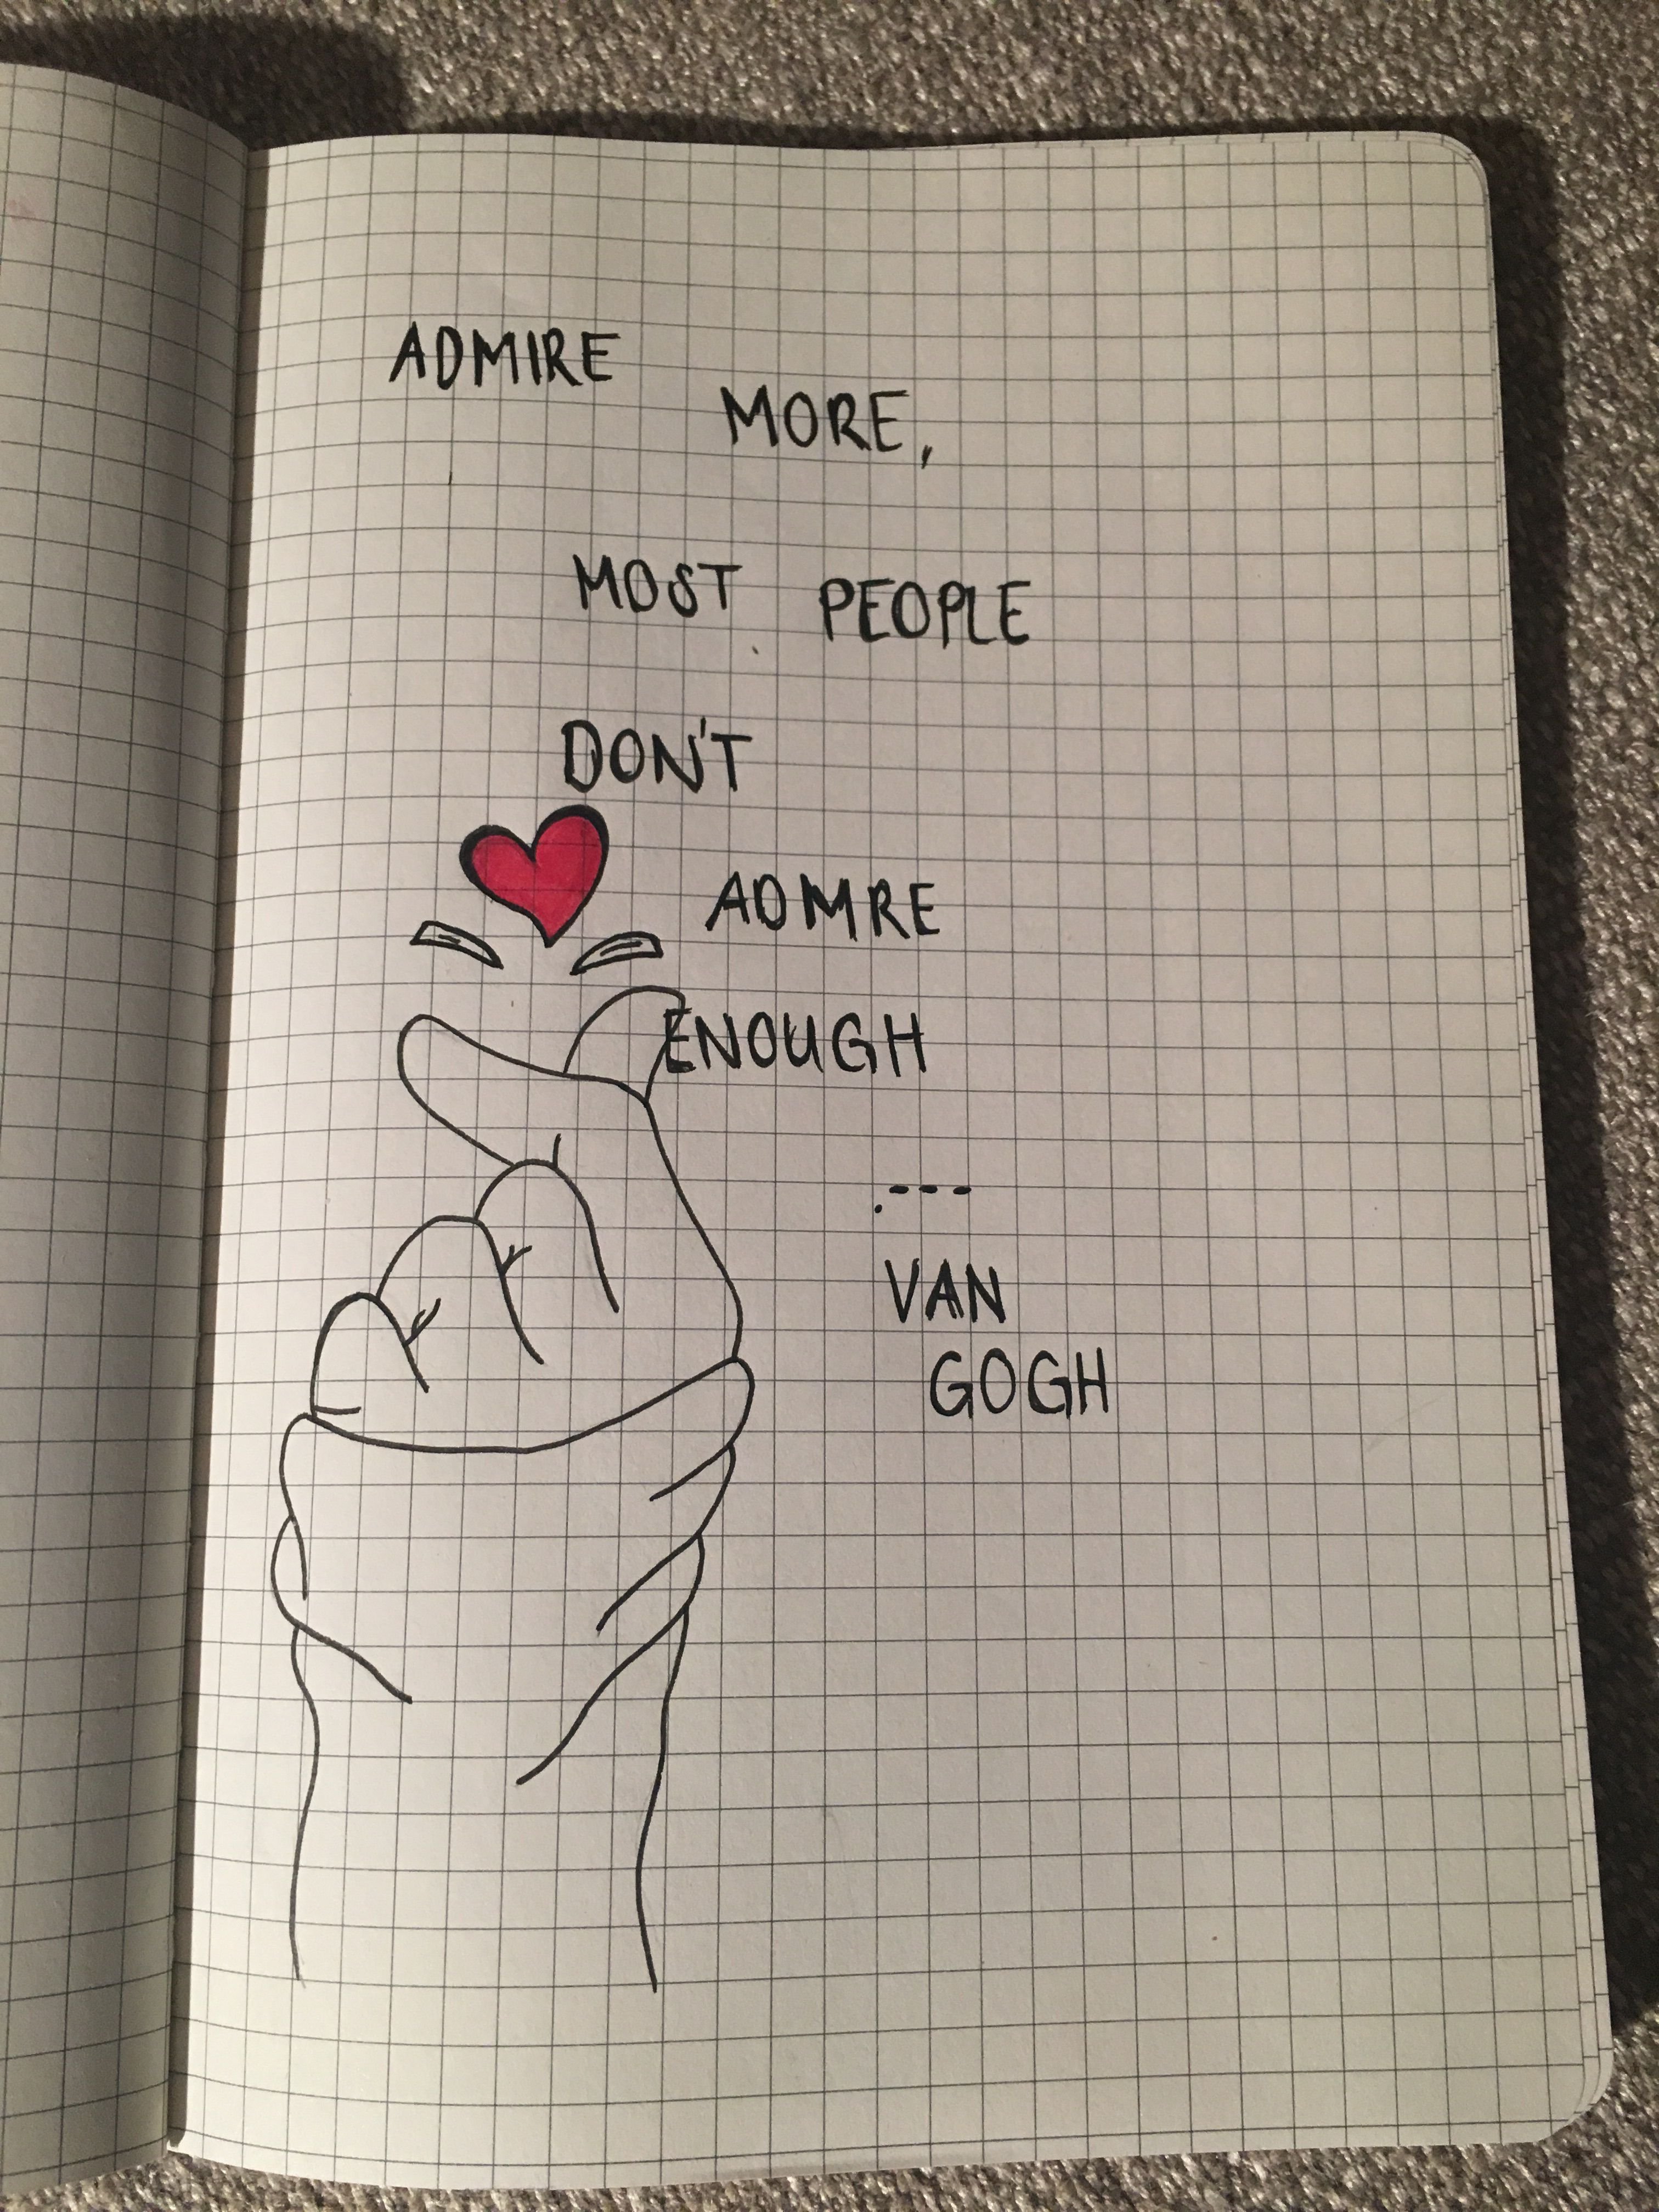 ADMIRE
MORE,
MOST PEOPLE
DON'T
ADMRE
ENOUGH
. ---
VAN
GOGH